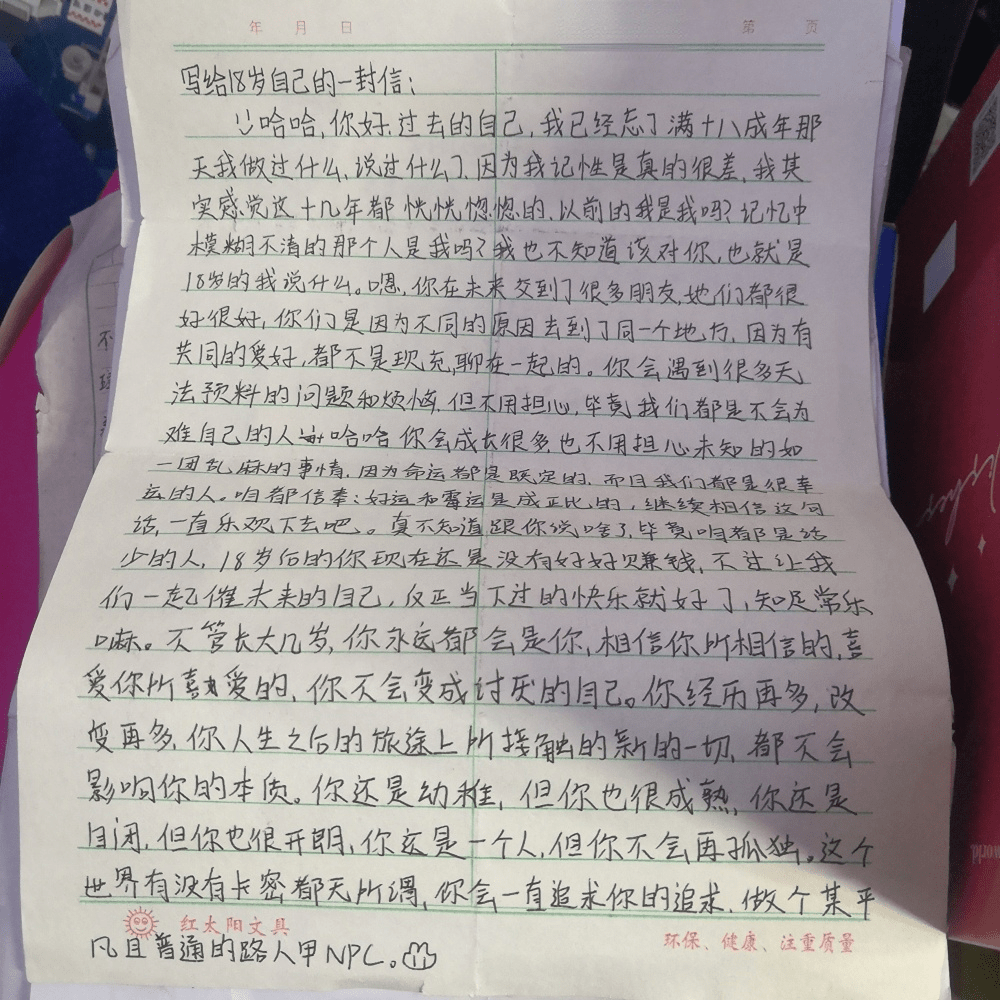 年 月 日 第 页
写给18岁自己的一封信:
哈哈,你好,过去的自己,我已经忘了满十八成年那
天我做过什么,说过什么了,因为我记性是真的很差,我其
实感觉这十几年都恍恍惚惚的,以前的我是我吗?记忆中
模糊不清的那个人是我吗?我也不知道该对你,也就是
18岁的我说什么。嗯,你在未来交到了很多朋友,她们都很
好很好,你们是因为不同的原因去到了同一个地方,因为有
共同的爱好,都不是现充,聊在一起的。你会遇到很多无
法预料的问题和烦恼,但不用担心,毕竟我们都是不会为
难自己的人 哈哈 你会成长很多,也不用担心未知的如
一团乱麻的事情,因为命运都是既定的,而且我们都是很幸
运的人。咱都信奉:好运和霉运是成正比的,继续相信这句
话,一直乐观下去吧。真不知道跟你说啥了,毕竟咱都是话
少的人,18岁后的你现在还是没有好好赚钱,不过让我
们一起催未来的自己,反正当下过的快乐就好了,知足常乐
嘛。不管长大几岁,你永远都会是你,相信你所相信的,喜
爱你所喜爱的,你不会变成讨厌的自己。你经历再多,改
变再多,你人生之后的旅途上所接触的新的一切,都不会
影响你的本质。你还是幼稚,但你也很成熟,你还是
自闭,但你也很开朗,你还是一个人,但你不会再孤独。这个
世界有没有卡密都无所谓,你会一直追求你的追求,做个某平
红太阳文具 环保、健康、注重质量
凡且普通的路人甲NPC。